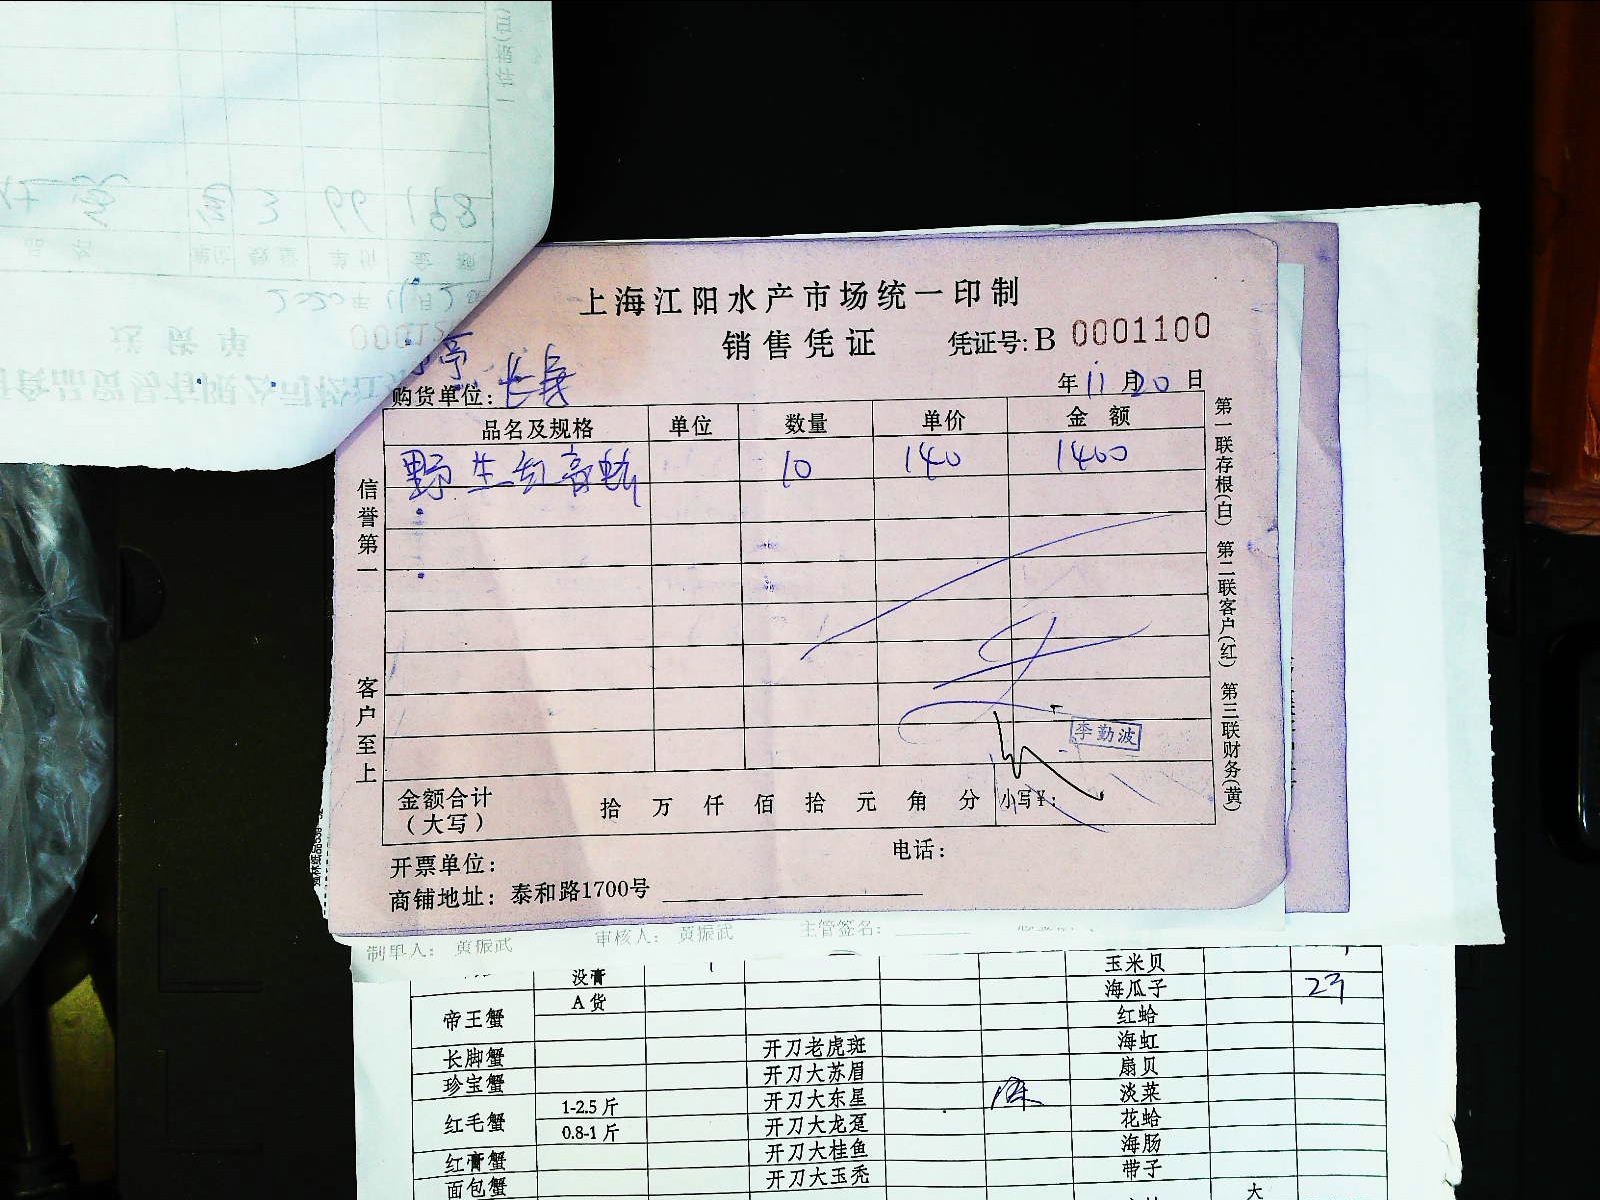 上海江阳水产市场统一印制
销售凭证 凭证号: B 0001100
年 11 月 20 日
购货单位:
品名及规格 单位 数量 单价 金额
野生红膏蚧 10 140 1400
信誉第一
客户至上
第一联存根(白) 第二联客户(红) 第三联财务(黄)
李勤波
金额合计(大写) 拾 万 仟 佰 拾 元 角 分 小写¥:
开票单位: 电话:
商铺地址: 泰和路1700号
制单人: 黄振武 审核人: 黄振武 主管签名:
没膏 玉米贝
帝王蟹 A 货 海瓜子 23
红蛤
长脚蟹 开刀老虎斑 海虹
珍宝蟹 开刀大苏眉 扇贝
红毛蟹 1-2.5 斤 开刀大东星 淡菜
0.8-1 斤 开刀大龙趸 花蛤
红膏蟹 开刀大桂鱼 海肠
面包蟹 开刀大玉秃 带子
大